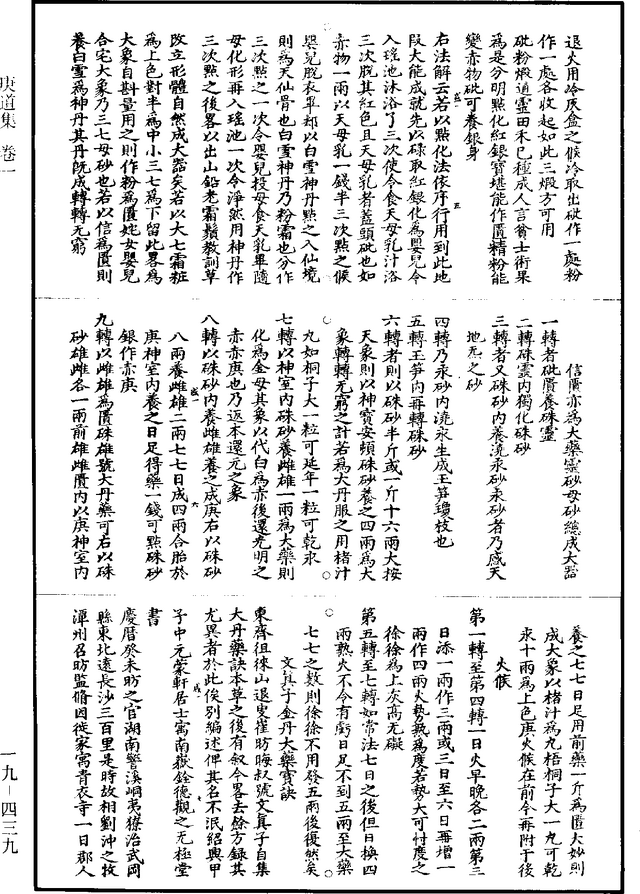 庚道集 卷一
退火用冷灰盒之候冷取出砒作一處粉
作一處各收起如此三煅方可用
砒粉煅逍靈田禾已種成人言貧士術果
為是分明點化紅銀寶堪能作匱精粉能
變赤物砒可養銀身
右法解云若以點化法依序行用到此地
段大能成就先以碌取紅銀化為嬰兒令
入瑤池沐浴了三次使令食天母乳汁洛
三次脫其紅色且天母乳者蓋頭砒也如
赤物一兩以天母乳一錢半三次點之候
嬰兒脫衣畢却以白雪神丹點之入仙境
則為天仙骨也白雪神丹乃粉霜也分作
三次點之一次令嬰兒投母食天乳畢隨
母化形再入瑤池一次令淨然用神丹作
三次點之後畧以出山鉛老霜鬚教訓草
改立形體自然成大器矣若以大七霜粧
為上色對半為中小三七為下留此畧為
大象自斟量用之則作粉為匱姹女嬰兒
合宅大象乃三七母砂也若以信為匱則
養白雪為神丹其丹旣成轉轉无窮
信匱亦為大藥靈砂母砂總成大器
一轉者砒匱養硃靈
二轉硃靈內獨化硃砂
三轉者又硃砂內養澆汞砂汞砂者乃感天
地炁之砂
四轉乃汞砂內澆汞生成玉筍瓊枝也
五轉玉筍內再轉硃砂
六轉者則以硃砂半斤或一斤十六兩大按
天象則以神寶安頓硃砂養之四兩為大
象轉轉无窮之計若為大丹服之用楮汁
丸如桐子大一粒可延年一粒可乾汞
七轉以神室內硃砂養雌雄一兩為大藥則
化為金母其象以代白為赤後還光明之
赤赤庚也乃返本還元之象
八轉以硃砂內養雌雄養之成庚右以硃砂
八兩養雌雄二兩七七日成四兩合胎於
庚神室內養之日足得藥一錢可點硃砂
銀作赤庚
九轉以雌雄為匱硃雄號大丹藥可右以硃
砂雄雌各一兩前雄雌匱內以庚神室內
養之七七日足用前藥一斤為匱大妙則
成大象以楮汁為丸梧桐子大一丸可乾
汞十兩為上色庚火候在前今再附于後
火候
第一轉至第四轉一日火早晚各二兩第三
日添一兩作三兩或三日至六日再增一
兩作四兩火勢熟為度若勢大可忖度之
徐徐為上灰高无礙
第五轉至七轉如常法七日之後但日換四
兩熟火不令有虧日足不到五兩至大藥
七七之數則徐徐不用發五兩後復然矣
文真子金丹大藥寶訣
東齊徂徠山退叟崔昉晦叔號文真子自集
大丹藥訣本草之後有叙今畧去餘方錄其
尤異者於此俟別編述俾其名不泯紹興甲
子中元蒙軒居士寓南嶽銓德觀之无極堂
書
慶曆癸未昉之官湖南警溪峒夷獠治武岡
縣東北遠長沙三百里是時故相劉沖之牧
潭州召昉監脩因徙家寓青衣寺一日郡人
一九-四三九